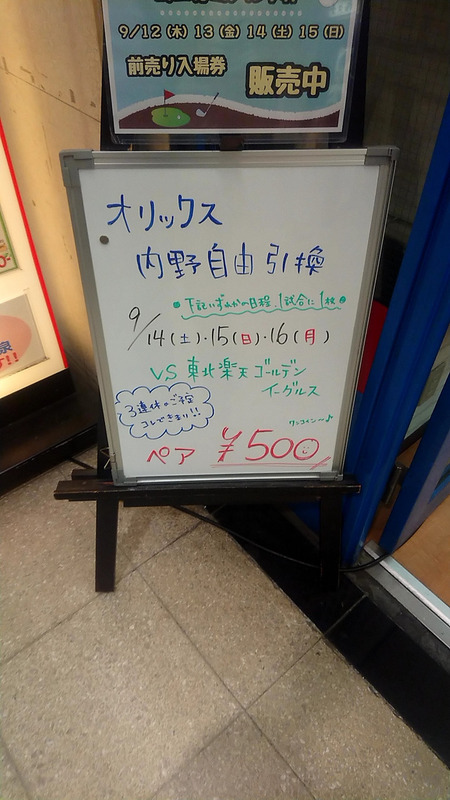 9/12(木)13(金)14(土)15(日)
前売り入場券
販売中
オリックス
内野自由引換
下記いずれかの日程、1試合に1枚
9/14(土)・15(日)・16(月)
VS 東北楽天ゴールデン
イーグルス
3連休のご予定
コレできまり!!
ワンコイン〜♪
ペア ¥500